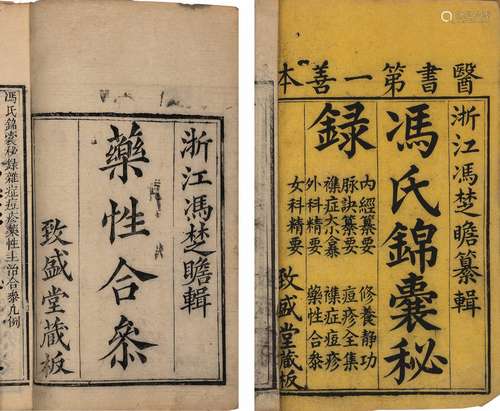 醫書第一善本
浙江馮楚瞻纂輯
馮氏錦囊秘
録
内經纂要 修養静功
脉訣纂要 痘疹全集
襍症大小 襍症痘疹
外科精要 藥性合叅
女科精要
致盛堂藏板
浙江馮楚瞻輯
藥性合叅
致盛堂藏板
馮氏錦囊秘録雜症痘疹藥性主治合參凡例